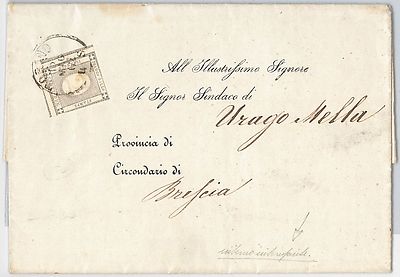 All' Illustrissimo Signore
Il Signor Sindaco di
Urago Mella
Provincia di
Circondario di
Brescia
interno interessante.